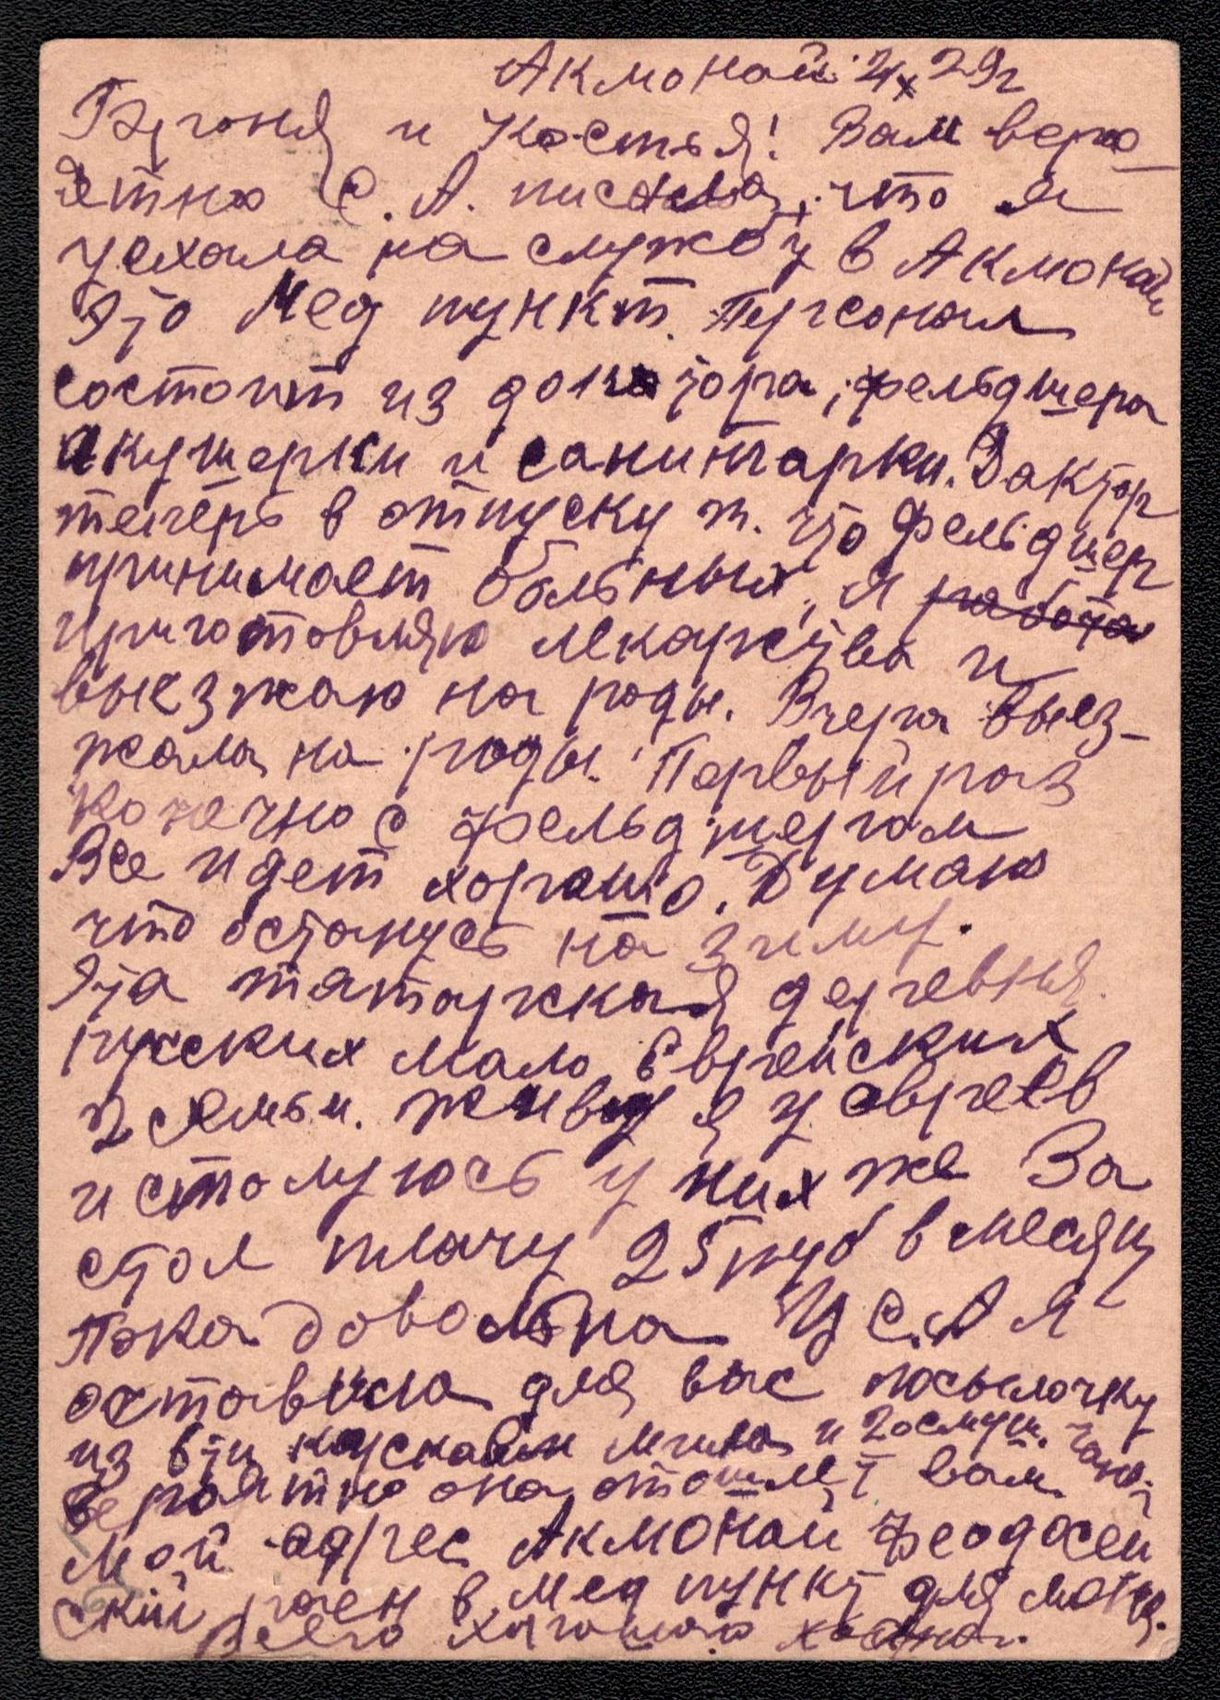 Акмонай 2/X 29г
и Костья! Вам веро-
ятно С. А. писала, что я
уехала на службу в Акмонай
Это Мед пункт. Персонал
состоит из доктора, фельдшера
акушерки и санитарки. Доктор
теперь в отпуску т. что фельдшер
принимает больных, я работаю
приготовляю лекарства и
выезжаю на роды. Вчера выез-
жала на роды. Первый раз
конечно с фельдшером
Все идет хорошо. Думаю
что останусь на зиму.
Эта татарская деревня
русских мало, Еврейских
2 семьи. Живу я у евреев
и столуюсь у них же За
стол плачу 25 руб в месяц
Пока довольна У С. А я
оставила для вас посылочку
из 8ти кусков мыла и 2 осмуш. чаю.
Вероятно она отошлет вам
Мой адрес Акмонай Феодосей
ский район в мед пункт для
Всего хорошего